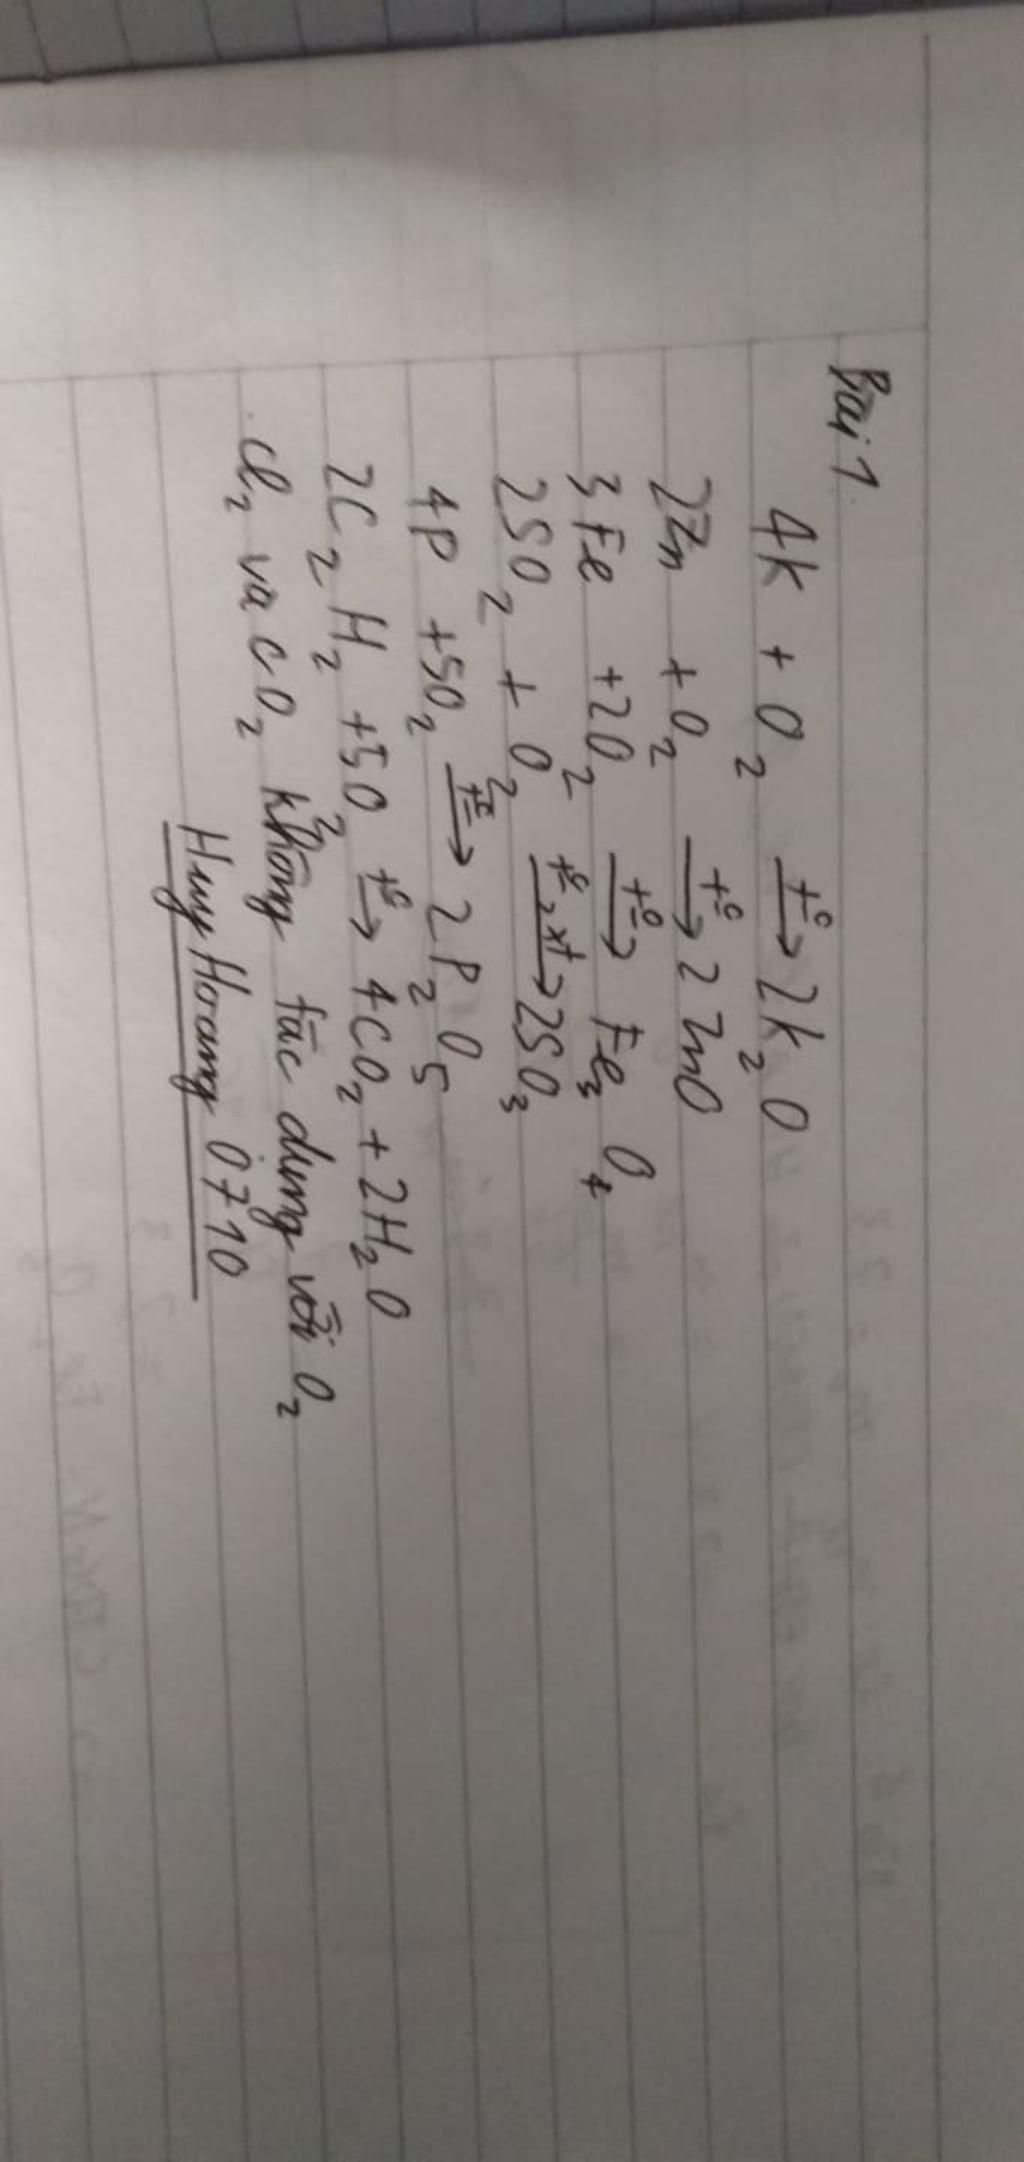 Bài 1.
4K + O₂ →(t°) 2K₂O
2Zn + O₂ →(t°) 2ZnO
3Fe + 2O₂ →(t°) Fe₃O₄
2SO₂ + O₂ →(t°, xt) 2SO₃
4P + 5O₂ →(t°) 2P₂O₅
2C₂H₂ + 5O₂ →(t°) 4CO₂ + 2H₂O
Cl₂ và CO₂ không tác dụng với O₂
HuyHoang 0710